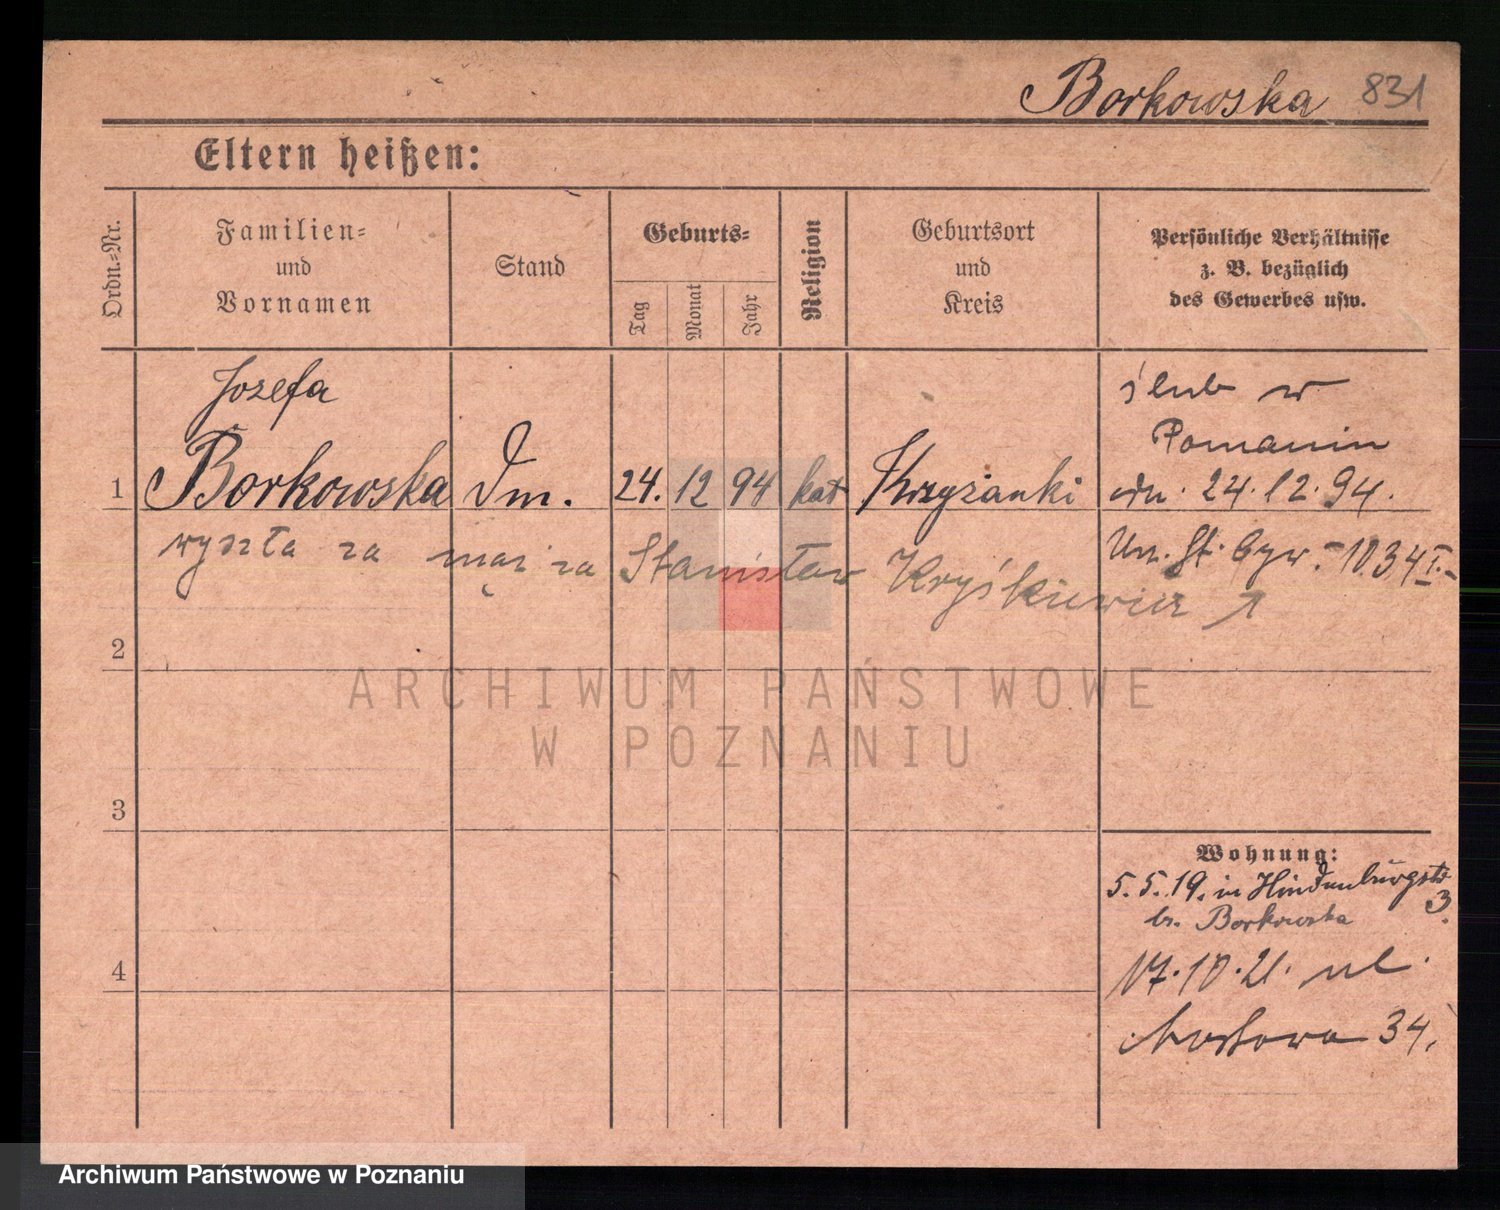 Borkowska 831
Eltern heißen:
Ordn.-Nr.
Familien-
und
Vornamen
Stand
Geburts-
Tag
Monat
Jahr
Religion
Geburtsort
und
Kreis
Persönliche Verhältnisse
z. B. bezüglich
des Gewerbes usw.
Jozefa
1 Borkowska Dm. 24. 12 94 kat Krzyżanki
ślub w
Poznaniu
dn. 24.12.94.
wyszła za mąż za Stanisław Kryśkiewicz
Urz. St. Cyw. 10.34 I.
2
3
4
ARCHIWUM PAŃSTWOWE
W POZNANIU
Wohnung:
5.5.19. in Hindenburgstr
3.
b. Borkowska
17.10.21. ul.
Mostowa 34.
Archiwum Państwowe w Poznaniu